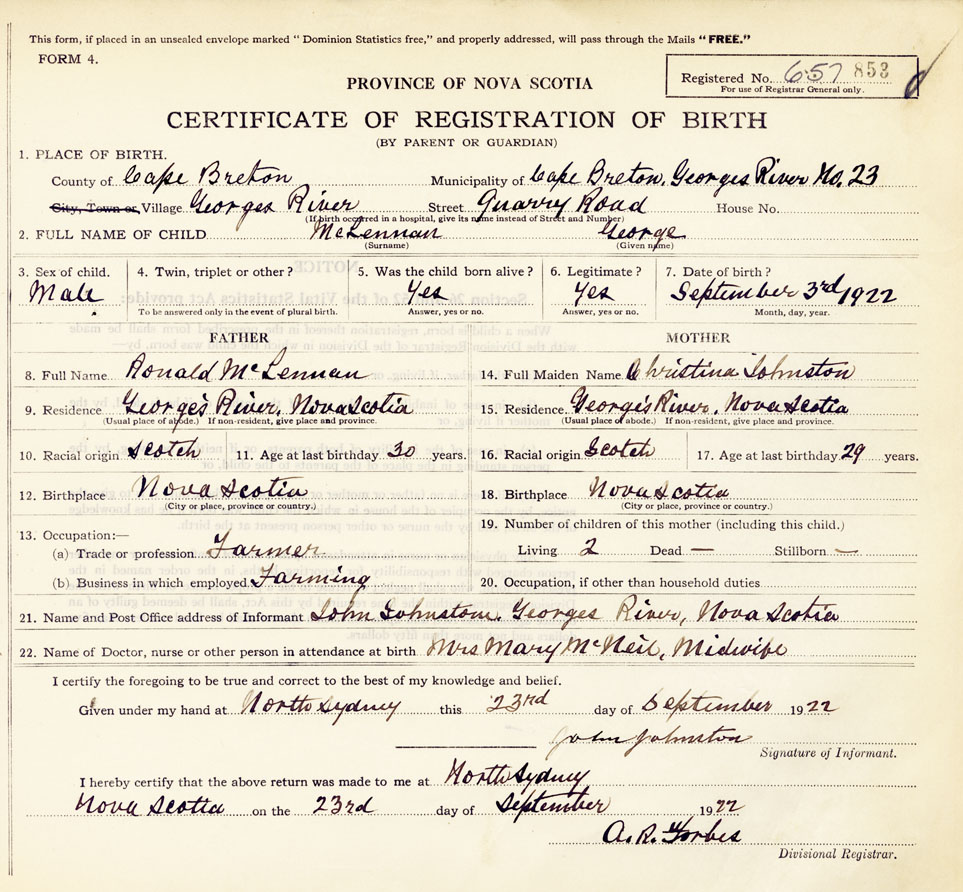 This form, if placed in an unsealed envelope marked "Dominion Statistics free," and properly addressed, will pass through the Mails "FREE."
FORM 4.
Registered No. 657 853
For use of Registrar General only.
PROVINCE OF NOVA SCOTIA
CERTIFICATE OF REGISTRATION OF BIRTH
(BY PARENT OR GUARDIAN)
1. PLACE OF BIRTH.
County of Cape Breton Municipality of Cape Breton, Georges River No. 23
City, Town or Village Georges River Street Quarry Road House No.
(If birth occurred in a hospital, give its name instead of Street and Number)
2. FULL NAME OF CHILD McLennan George
(Surname) (Given name)
3. Sex of child. 4. Twin, triplet or other? 5. Was the child born alive? 6. Legitimate? 7. Date of birth?
Male Yes Yes September 3rd 1922
To be answered only in the event of plural birth. Answer, yes or no. Answer, yes or no. Month, day, year.
FATHER MOTHER
8. Full Name Ronald McLennan 14. Full Maiden Name Christina Johnston
9. Residence George's River, Nova Scotia 15. Residence George's River, Nova Scotia
(Usual place of abode.) If non-resident, give place and province. (Usual place of abode.) If non-resident, give place and province.
10. Racial origin Scotch 11. Age at last birthday 30 years. 16. Racial origin Scotch 17. Age at last birthday 29 years.
12. Birthplace Nova Scotia 18. Birthplace Nova Scotia
(City or place, province or country.) (City or place, province or country.)
13. Occupation:— 19. Number of children of this mother (including this child.)
(a) Trade or profession Farmer Living 2 Dead — Stillborn —
(b) Business in which employed Farming 20. Occupation, if other than household duties
21. Name and Post Office address of Informant John Johnstom, Georges River, Nova Scotia
22. Name of Doctor, nurse or other person in attendance at birth Mrs Mary McNeil, Midwife
I certify the foregoing to be true and correct to the best of my knowledge and belief.
Given under my hand at North Sydney this 23rd day of September 1922
John Johnston
Signature of Informant.
I hereby certify that the above return was made to me at North Sydney
Nova Scotia on the 23rd day of September 1922
A. R. Forbes
Divisional Registrar.